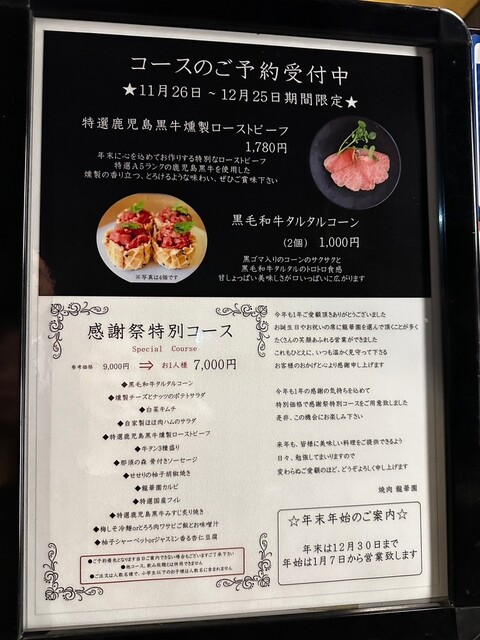 コースのご予約受付中
★11月26日～12月25日期間限定★
特選鹿児島黒牛燻製ローストビーフ
1,780円
年末に心を込めてお作りする特別なローストビーフ
特選A5ランクの鹿児島黒牛を使用した
燻製の香り立つ、とろけるような味わい、ぜひご賞味下さい
黒毛和牛タルタルコーン
(2個) 1,000円
※写真は4個です
黒ゴマ入りのコーンのサクサクと
黒毛和牛タルタルのトロトロ食感
甘じょっぱい美味しさが口いっぱいに広がります
感謝祭特別コース
Special Course
参考価格 9,000円 ⇒ お1人様 7,000円
◆黒毛和牛タルタルコーン
◆燻製チーズとナッツのポテトサラダ
◆白菜キムチ
◆自家製ほほ肉ハムのサラダ
◆特選鹿児島黒牛燻製ローストビーフ
◆牛タン3種盛り
◆那須の森 骨付きソーセージ
◆せせりの柚子胡椒焼き
◆龍華園カルビ
◆特選国産フィレ
◆特選鹿児島黒牛みすじ炙り焼き
◆梅しそ冷麺orとろろ肉ワサビご飯とお味噌汁
◆柚子シャーベットorジャスミン香る杏仁豆腐
●ご予約優先となります当日ご案内できない場合もございますご了承下さい
●他コース、飲み放題とは併用できません
●ご注文は人数名様で、小学生以下のお子様は人数名に含まれません
今年も1年ご愛顧頂きありがとうございました
お誕生日やお祝いの席に龍華園を選んで頂くことが多く
たくさんの笑顔あふれる営業ができました
これもひとえに、いつも温かく見守って下さる
お客様のおかげと心より感謝申し上げます
今年も1年の感謝の気持ちを込めて
特別価格で感謝祭特別コースをご用意致しました
是非、この機会にお楽しみ下さい
来年も、皆様に美味しい料理をご提供できるよう
日々、勉強してまいりますので
変わらぬご愛顧のほど、どうぞよろしく申し上げます
焼肉 龍華園
☆年末年始のご案内☆
年末は12月30日まで
年始は1月7日から営業致します